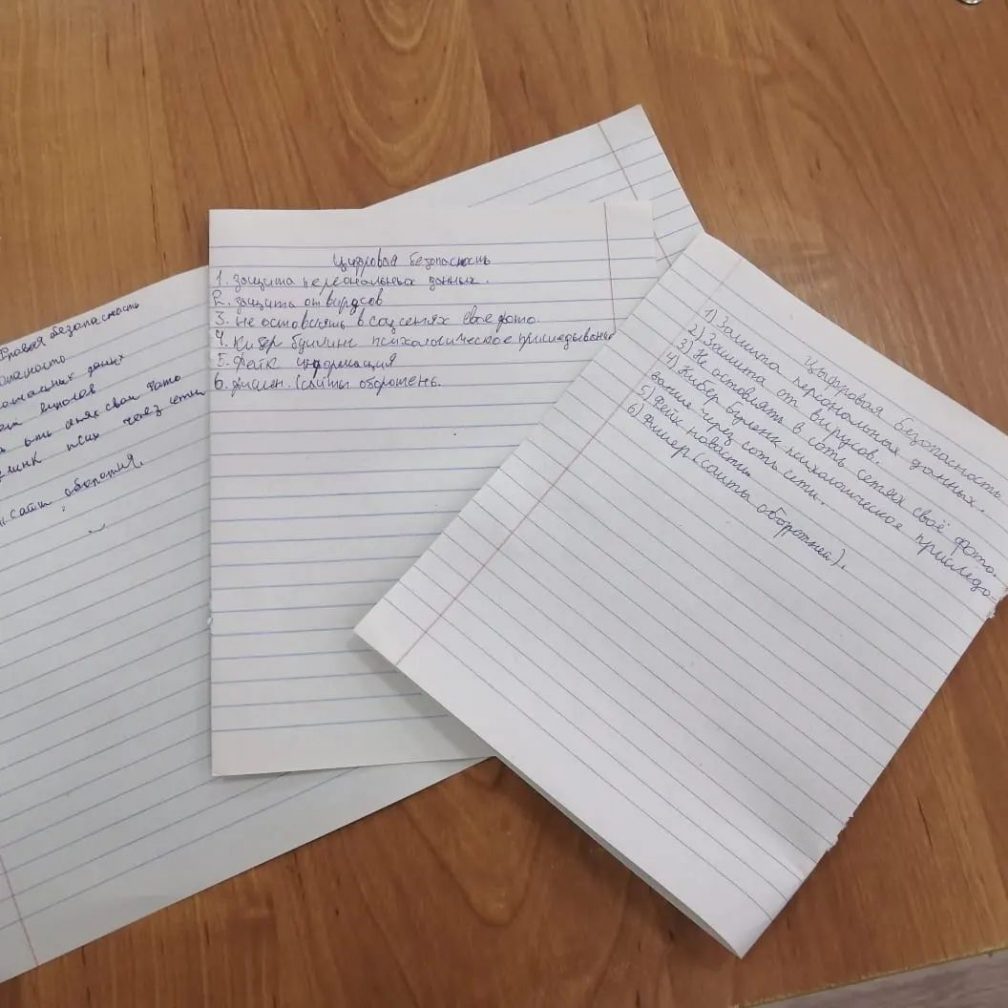 безопасность
данных
свои фото
псих через сети
сайт оборотня.
Цифровая безопасность
1. защита персональных данных.
2. защита от вирусов
3. не оставлять в соц сетях свое фото.
4. Кибер буллинг психологическое приследывание
5. Фейк информация
6. фишен. (сайты оборотень.
Цыфровая безопасность
1) Защита персональная данных.
2) Защита от вирусов.
3) Не оставлять в соть сетях своё фото.
4) Кибер буленк психологическое приследо-
вание через соть сети.
5) Фейк новасти
6) Фишер (саиты оборотней).